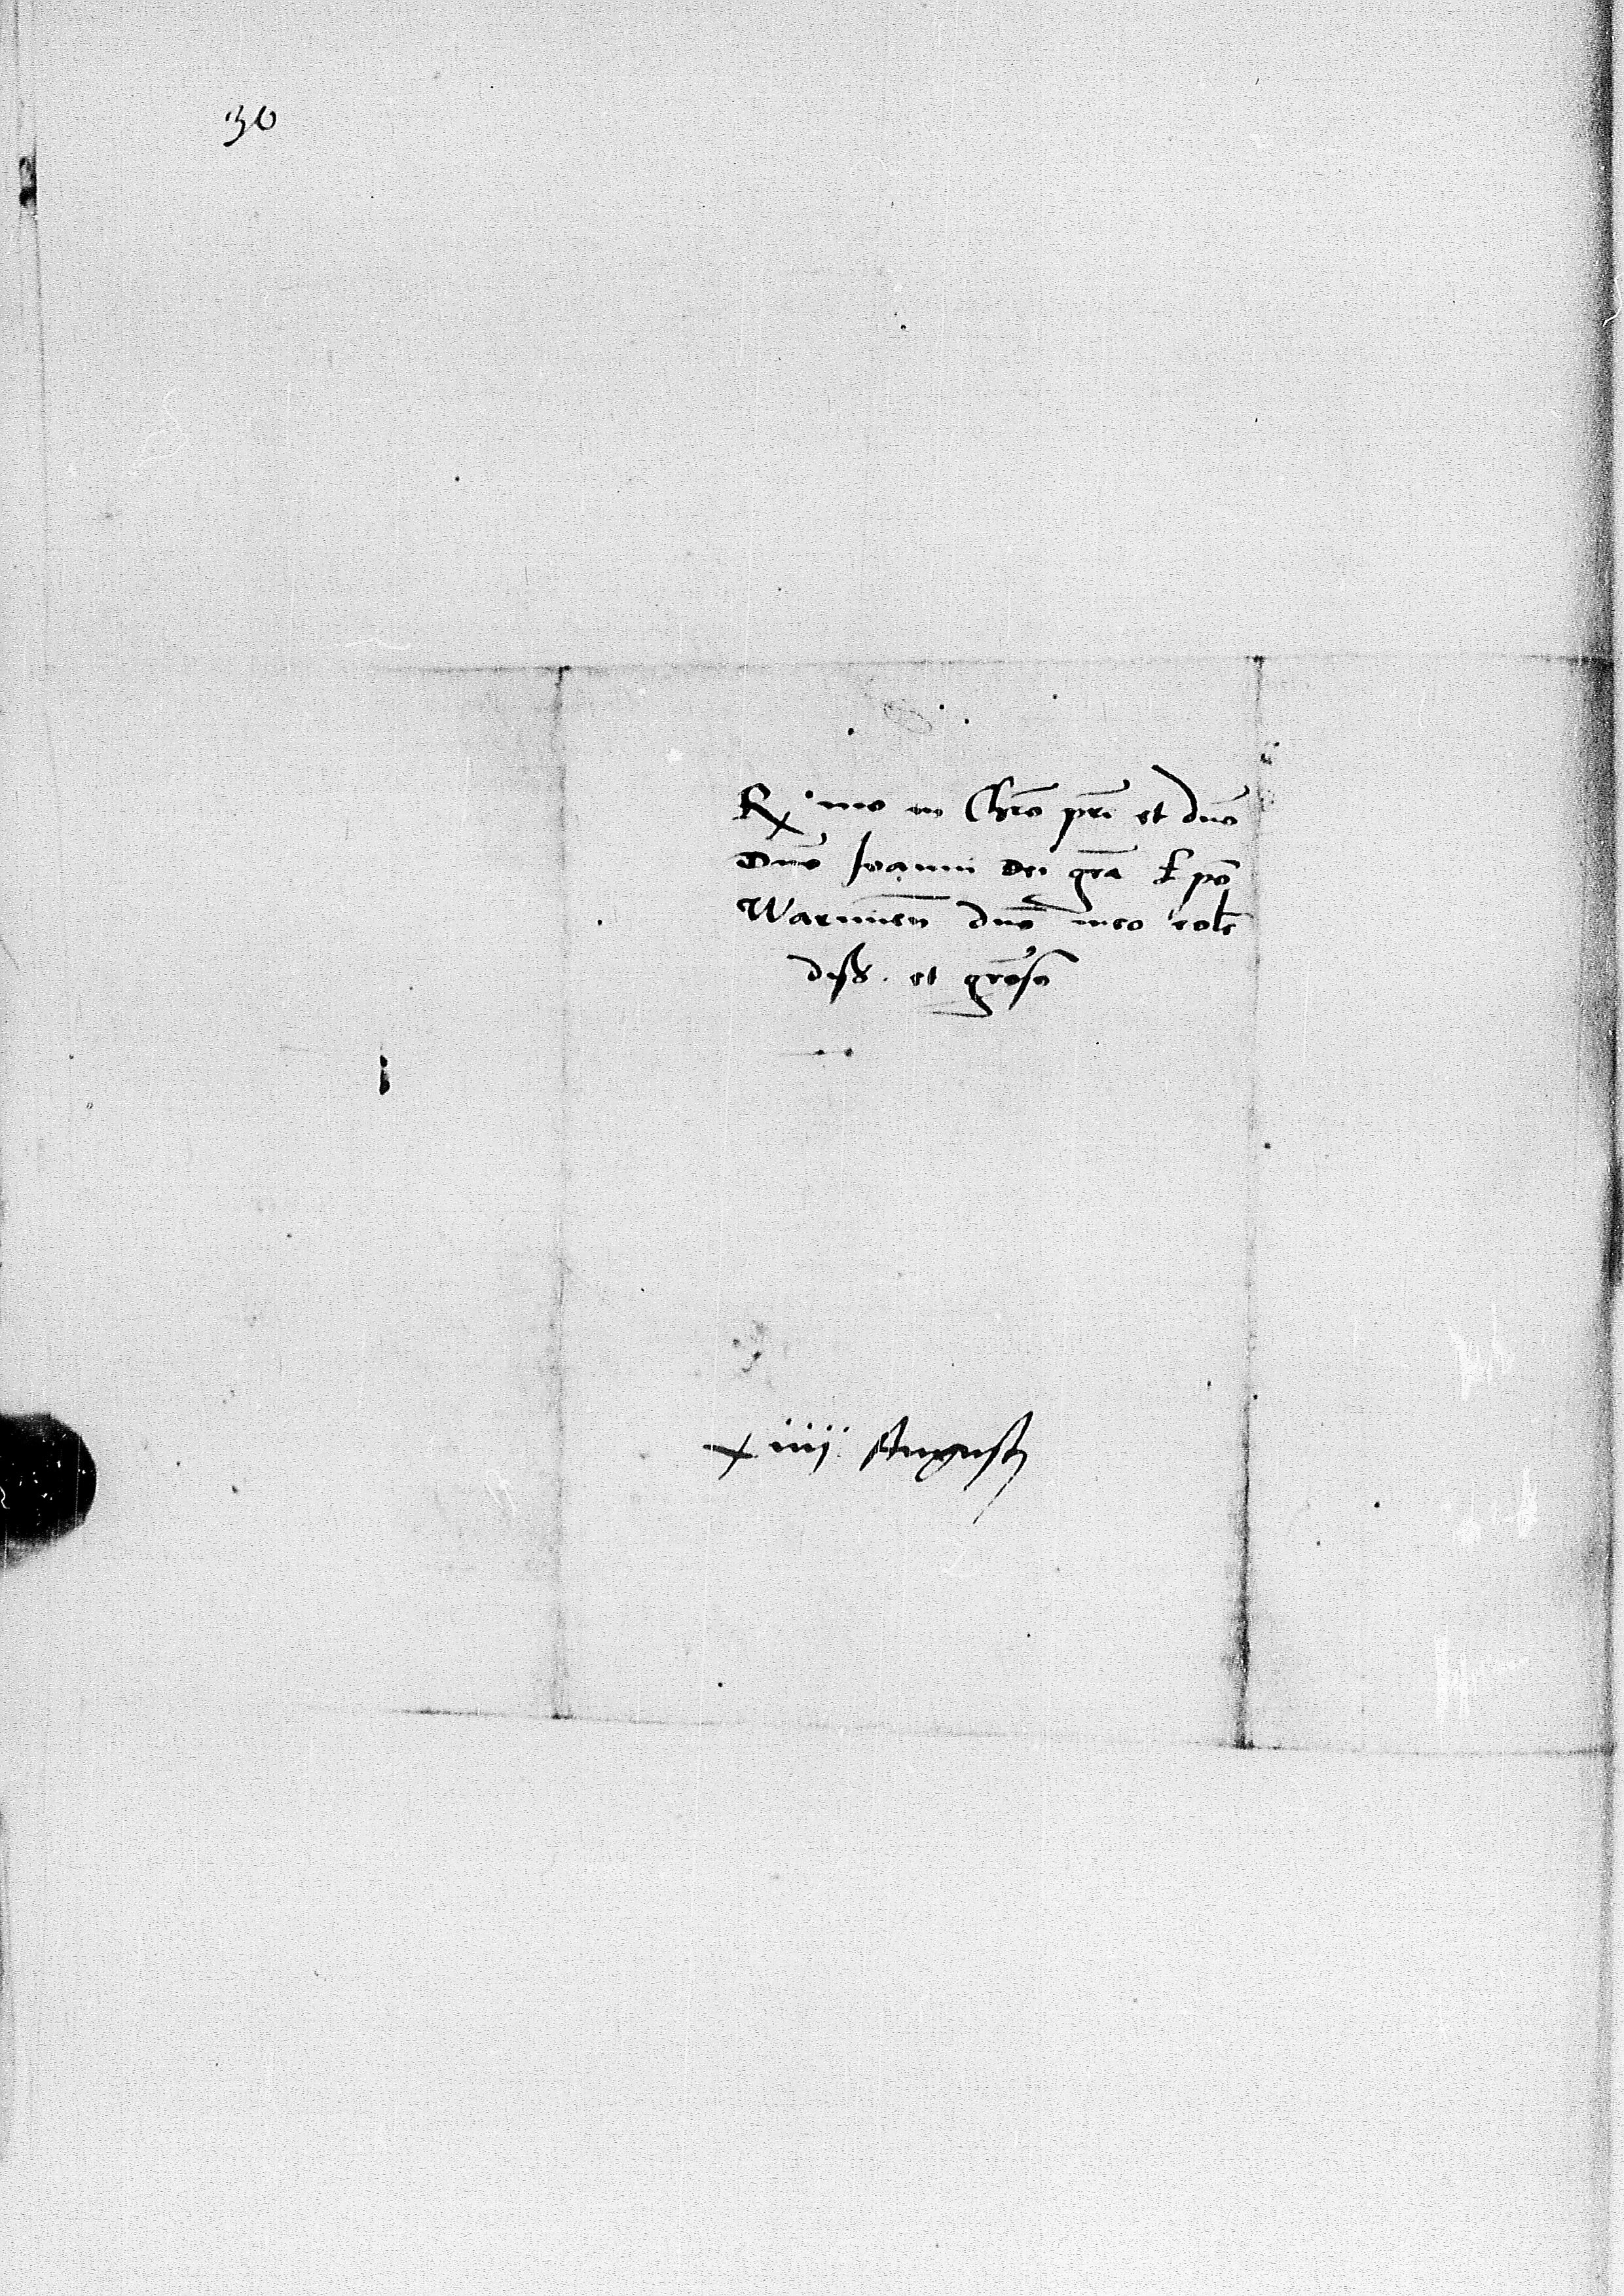 30
Rx.mo in Chro͞ pri͞ et dn͞o
Dn͞o Joanni Dei gra͞ Ep͞o
Warmien͞ dn͞o meo col͞e
dss. et gr͞oso
xiiij Augusti